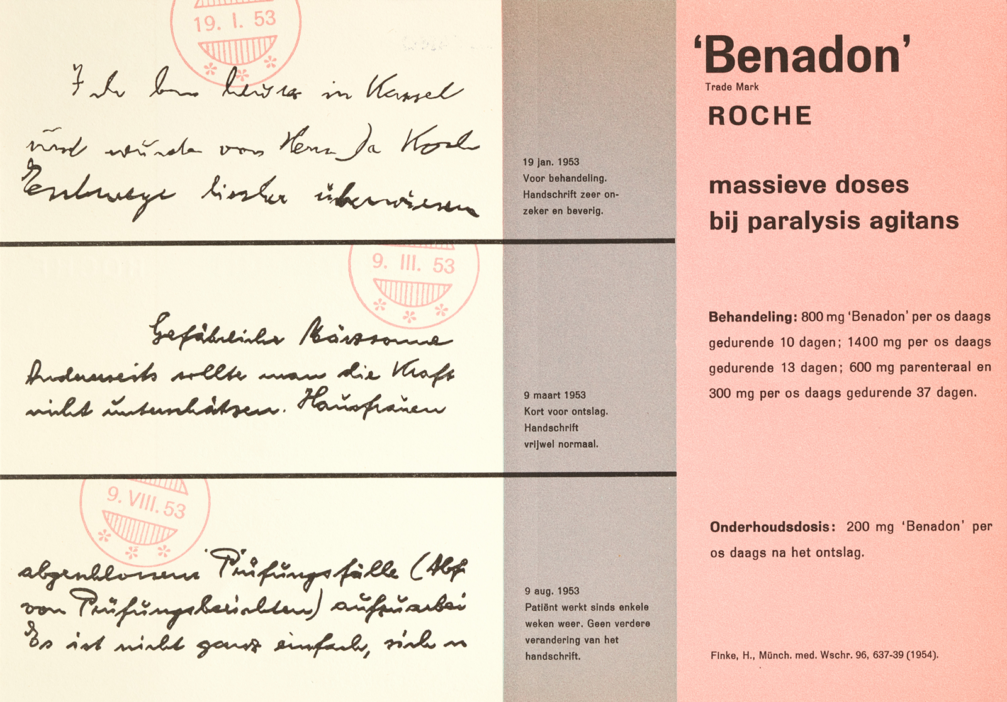 19. I. 53
Ich bin heute in Kassel
und wurde von Herrn Dr Koch
Eschwege hierher überwiesen
19 jan. 1953
Voor behandeling.
Handschrift zeer on-
zeker en beverig.
9. III. 53
Gefährliche Märzsonne
Andererseits sollte man die Kraft
nicht unterschätzen. Hausfrauen
9 maart 1953
Kort voor ontslag.
Handschrift
vrijwel normaal.
9. VIII. 53
abgeschlossene Prüfungsfälle (Abf
von Prüfungsberichten) aufzuarbei
Es ist nicht ganz einfach, sich
9 aug. 1953
Patiënt werkt sinds enkele
weken weer. Geen verdere
verandering van het
handschrift.
‘Benadon’
Trade Mark
ROCHE
massieve doses
bij paralysis agitans
Behandeling: 800 mg ‘Benadon’ per os daags
gedurende 10 dagen; 1400 mg per os daags
gedurende 13 dagen; 600 mg parenteraal en
300 mg per os daags gedurende 37 dagen.
Onderhoudsdosis: 200 mg ‘Benadon’ per
os daags na het ontslag.
Finke, H., Münch. med. Wschr. 96, 637-39 (1954).